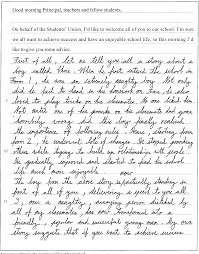 Good morning Principal, teachers and fellow students,
On behalf of the Students' Union, I'd like to welcome all of you to our school. I'm sure
we all want to achieve success and have an enjoyable school life, so this morning I'd
like to give you some advice.
First of all, let me tell you all a story about a
boy called Ben. When he first entered the school in
Form 1, he was an extremely naughty boy. Not only
did he fail to hand in his homework on time, he also
loved to play tricks on his classmates. No one liked him
Not until one of his pranks on his classmates had gone
horribly wrong did this boy finally realised
the importance of following rules. Hence, starting from
form 2, he endured lots of changes. He stopped pranking
others while trying to build up relationships with people.
He gradually improved and started to find his school
life much more enjoyable.
The boy from the above story is standing in
front of all of you, delivering a speech to you all.
I, once a naughty, annoying person disliked by
all of my classmates, now transformed into a
friendly, popular and successful young man. My own
story suggests that if you want to achieve success